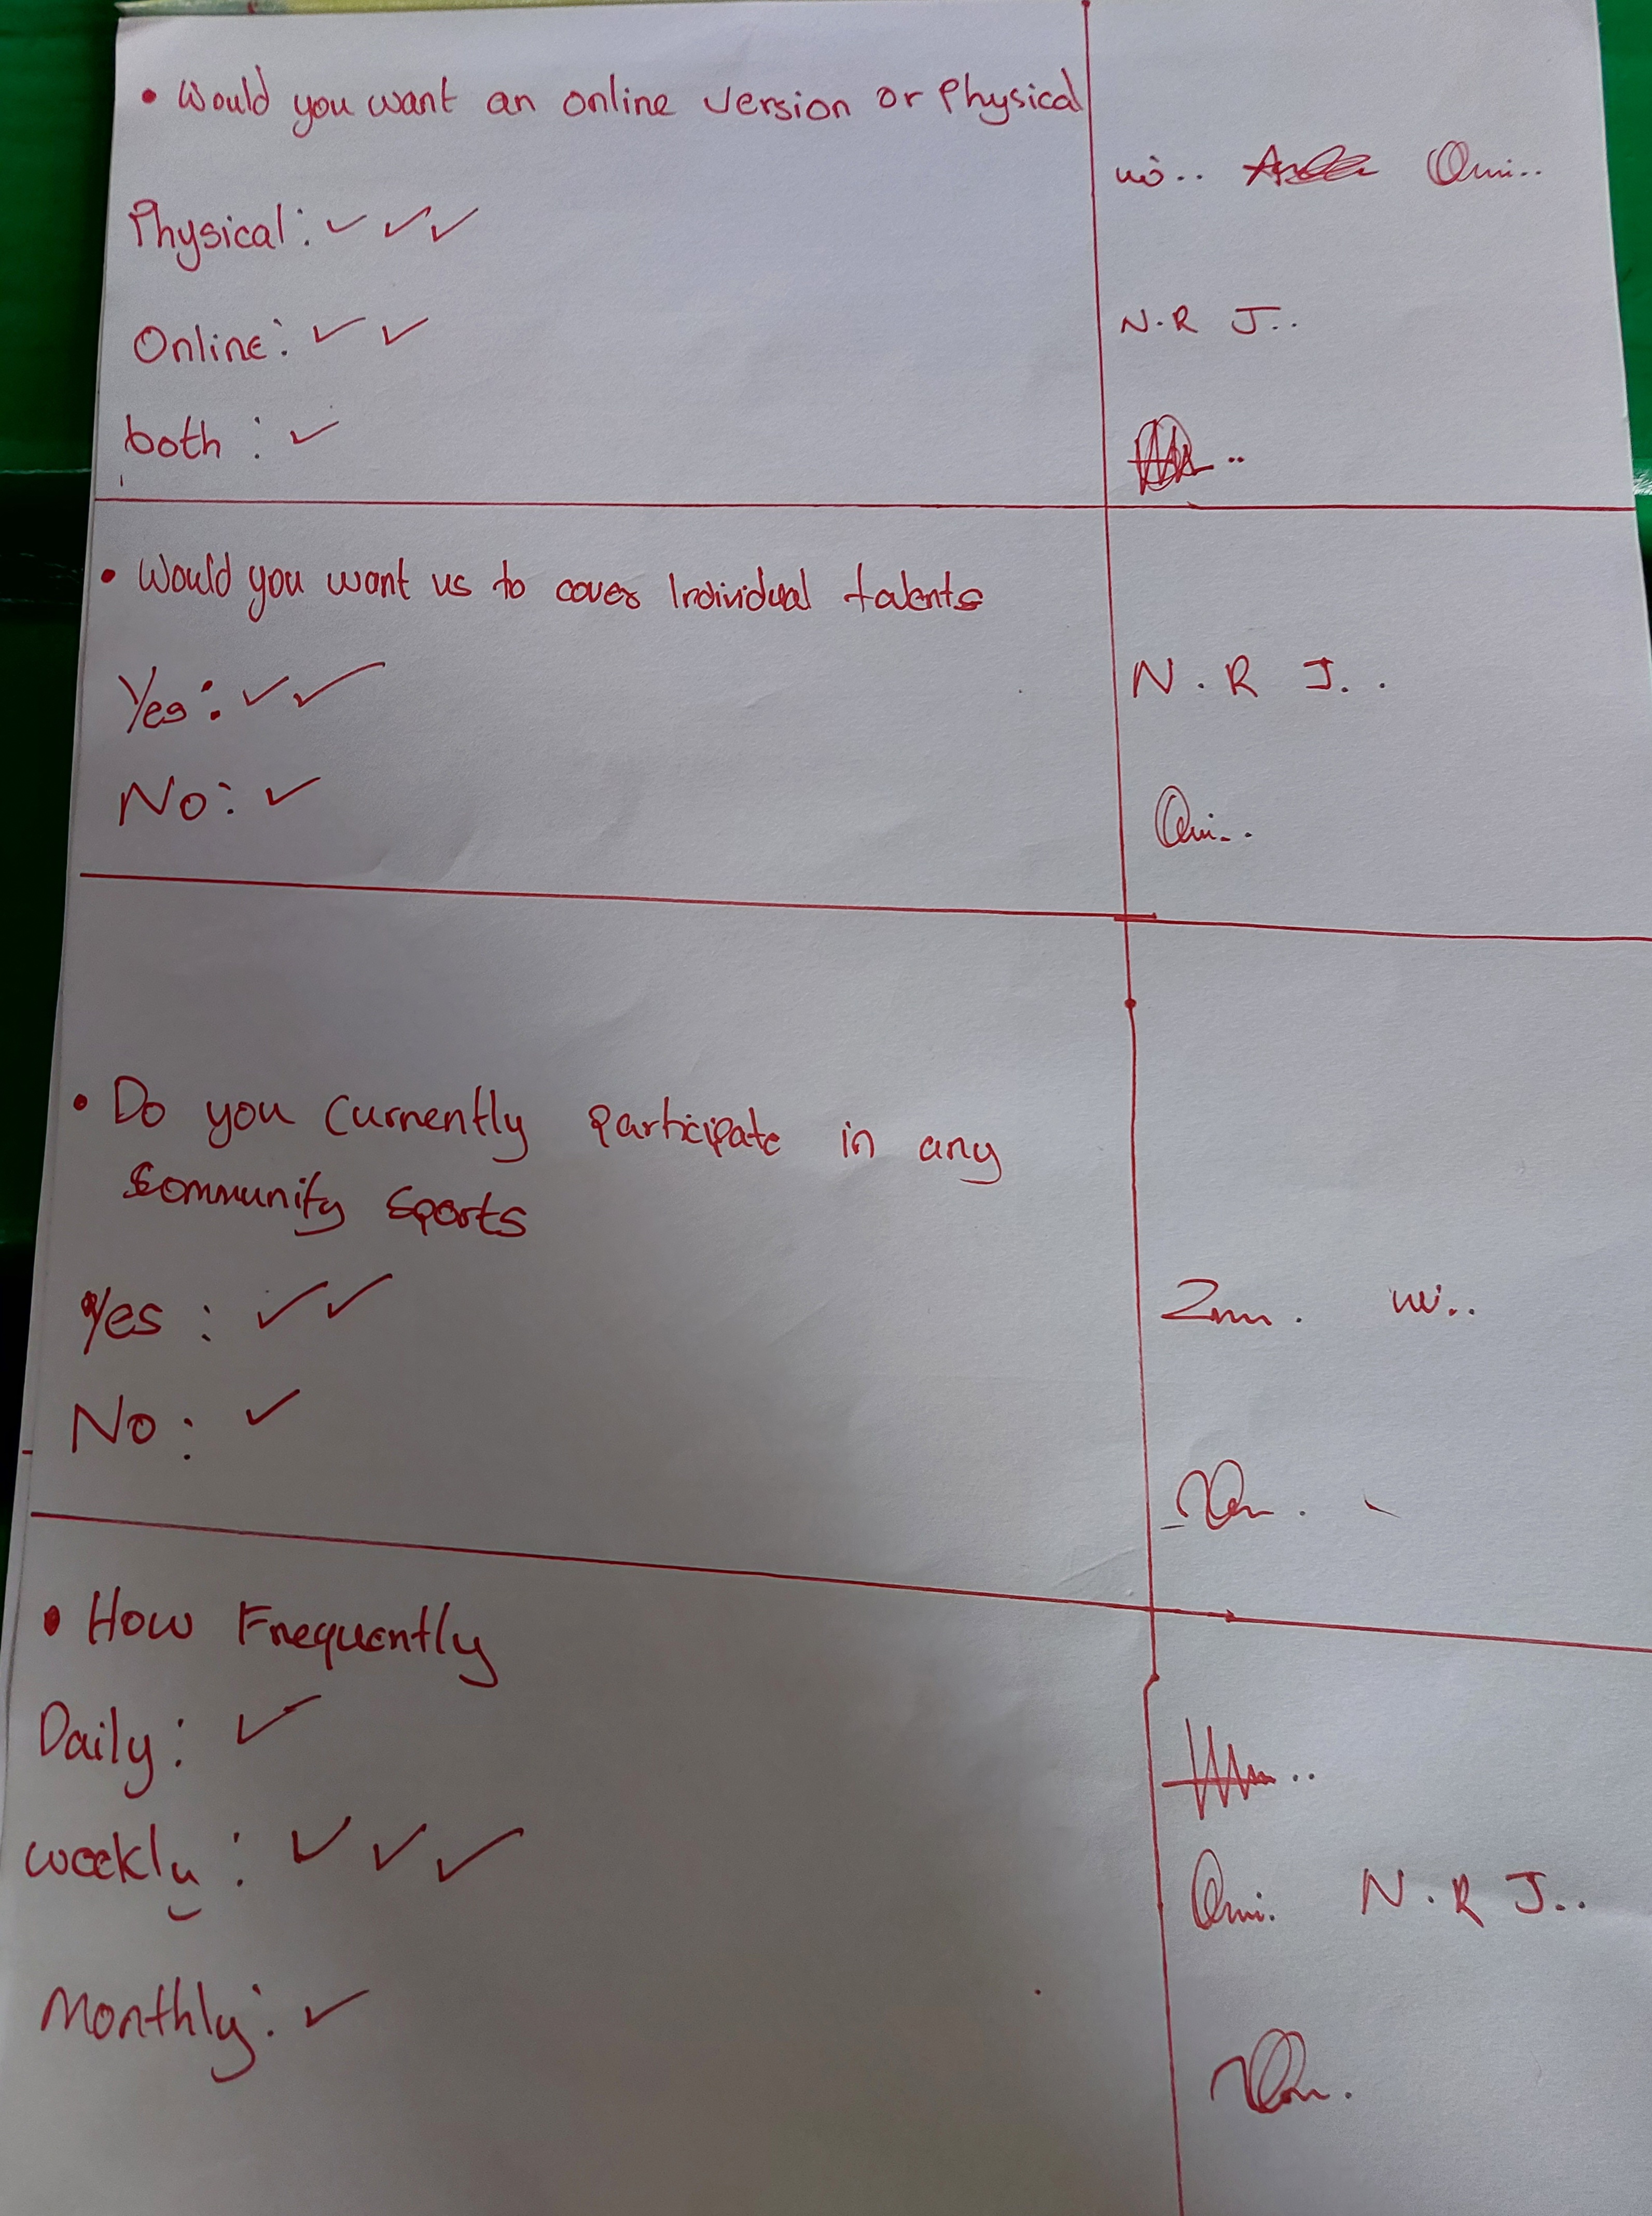 • Would you want an online version or Physical
Physical: ✓ ✓ ✓
Online: ✓ ✓
N.R J..
both : ✓
• Would you want us to cover Individual talents
Yes: ✓ ✓
N.R J..
No: ✓
• Do you Currently Participate in any
Community Sports
Yes : ✓ ✓
No : ✓
• How Frequently
Daily: ✓
weekly : ✓ ✓ ✓
N.R J..
Monthly: ✓